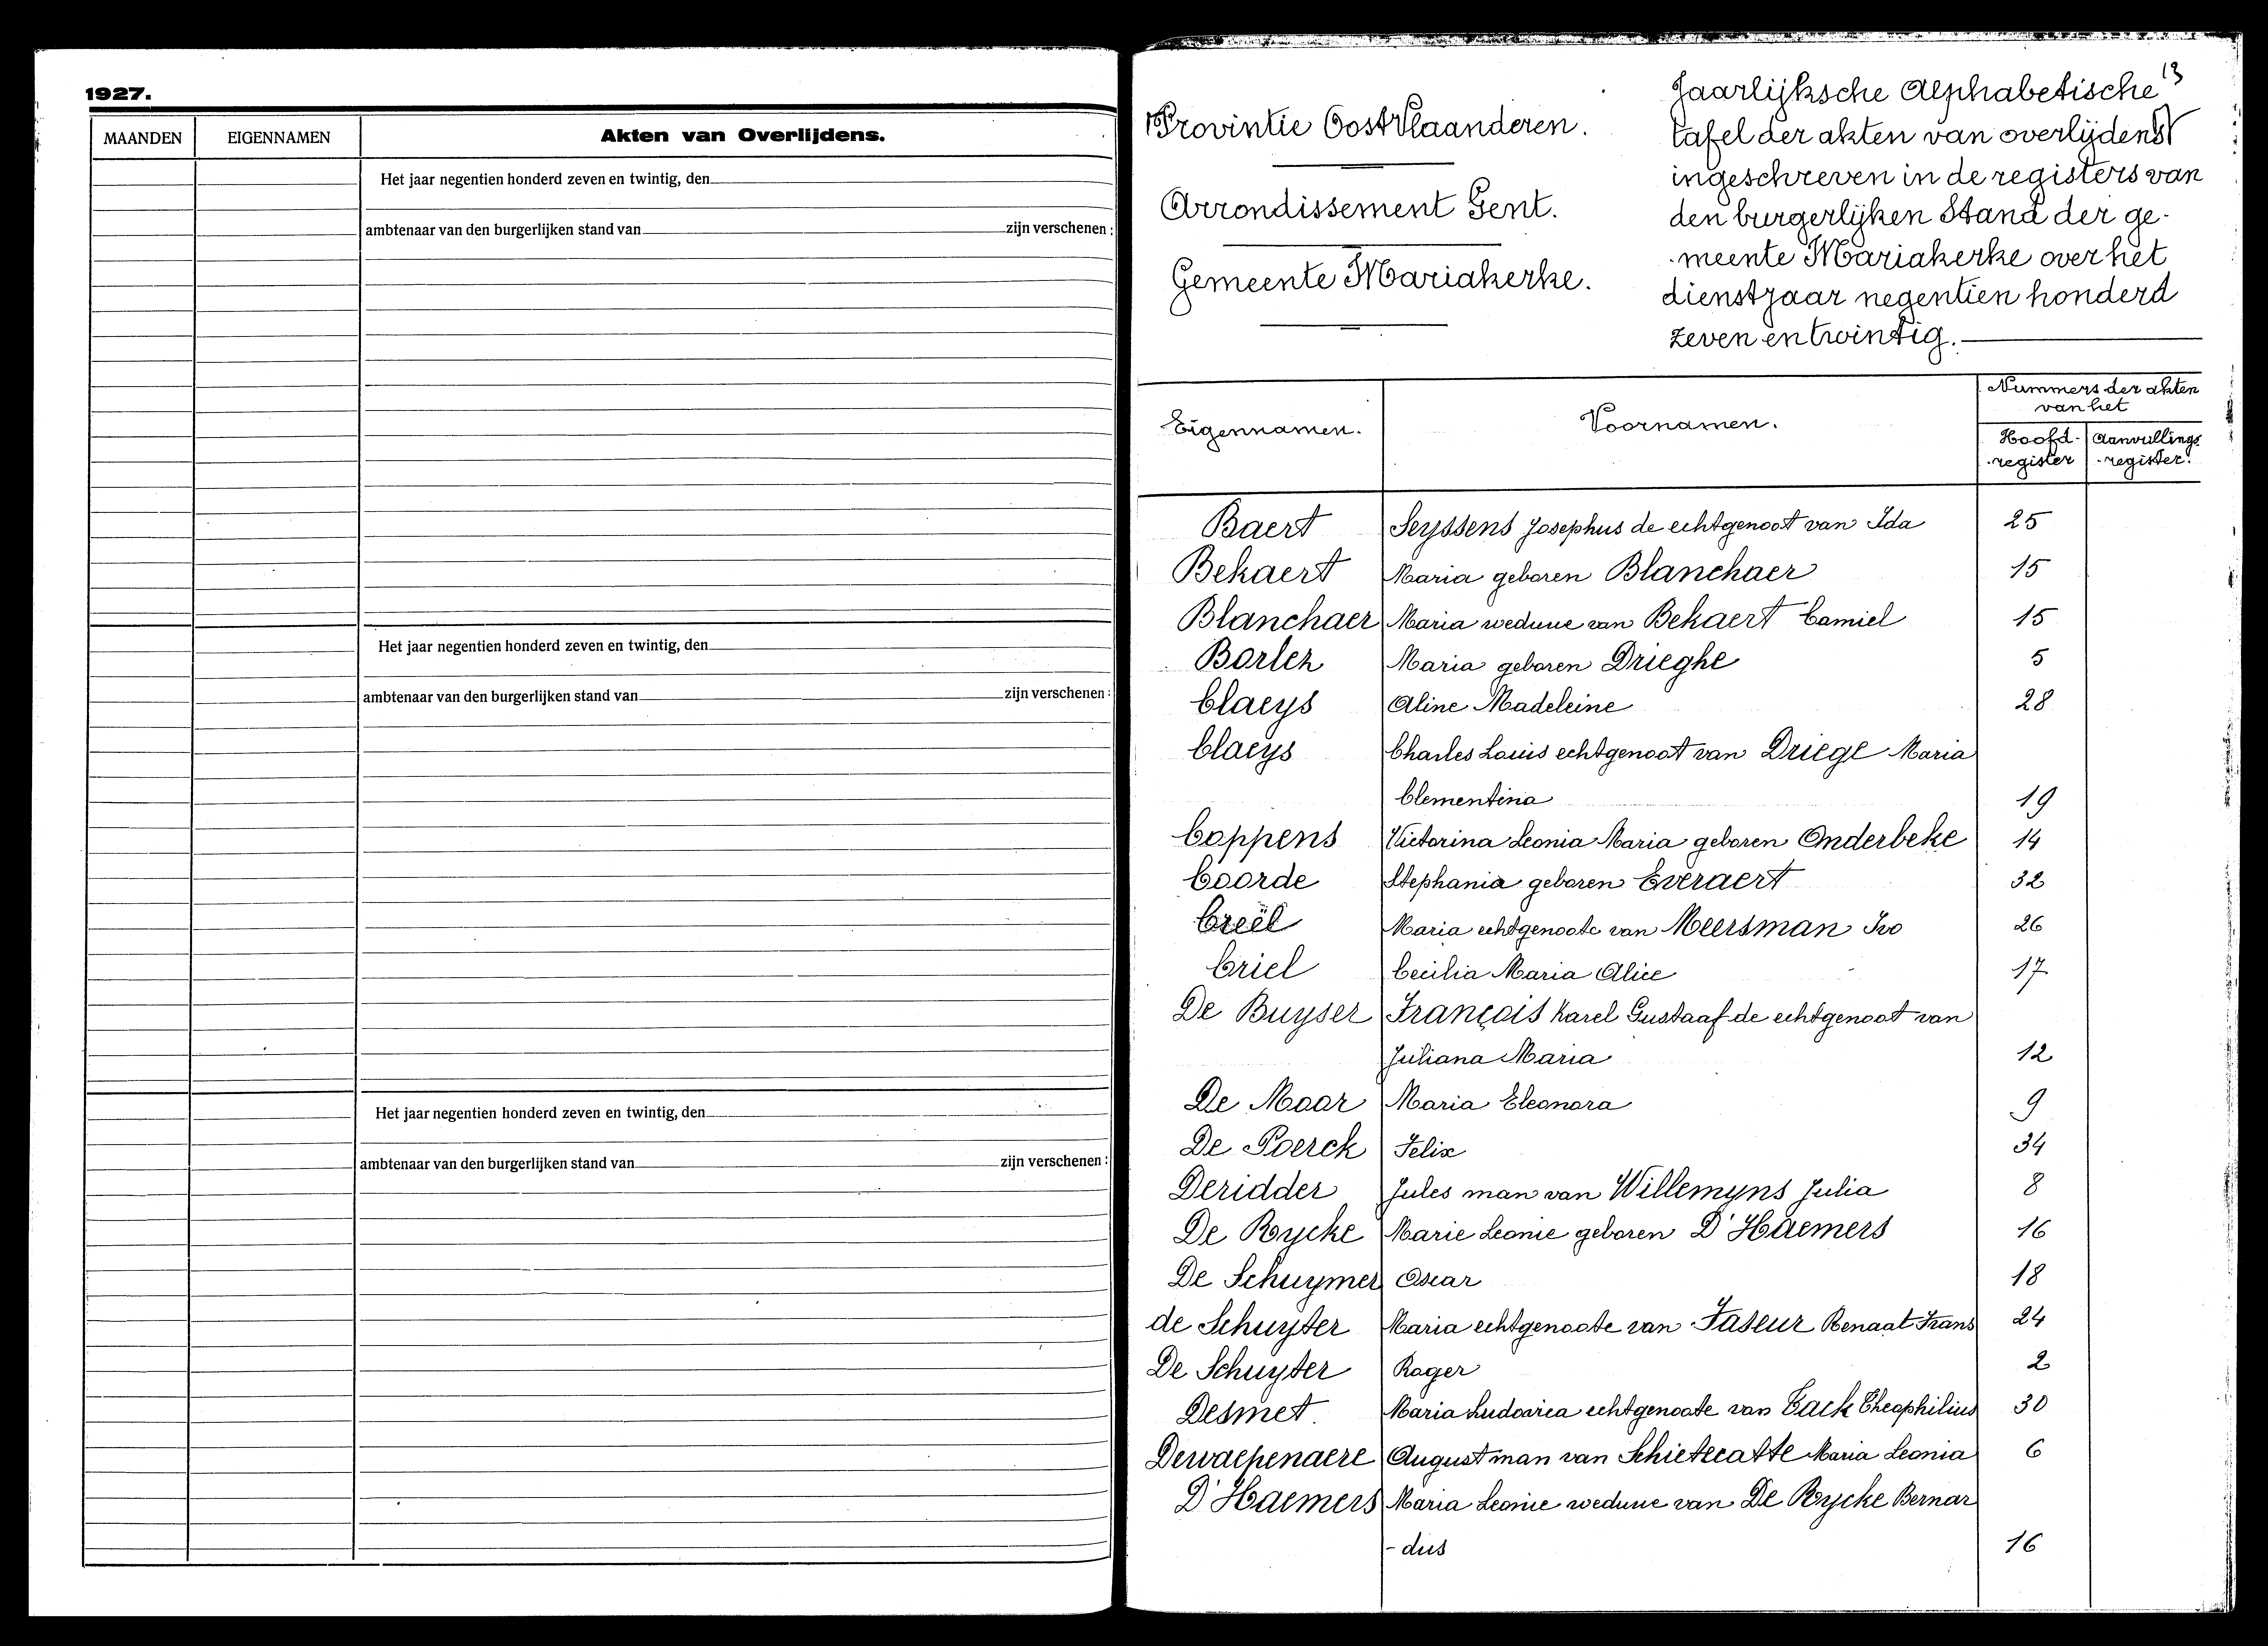 1927.
MAANDEN EIGENNAMEN Akten van Overlijdens.
Het jaar negentien honderd zeven en twintig, den
ambtenaar van den burgerlijken stand van zijn verschenen :
Het jaar negentien honderd zeven en twintig, den
ambtenaar van den burgerlijken stand van zijn verschenen :
Het jaar negentien honderd zeven en twintig, den
ambtenaar van den burgerlijken stand van zijn verschenen :
13
Provintie Oost Vlaanderen.
Arrondissement Gent.
Gemeente Mariakerke.
Jaarlijksche Alphabetische
tafel der akten van overlijdens
ingeschreven in de registers van
den burgerlijken Stand der ge-
-meente Mariakerke over het
dienstjaar negentien honderd
zeven en twintig.
Eigennamen. Voornamen. Nummers der akten
van het
Hoofd- Aanvullings
-register -register.
Baert Seyssens Josephus de echtgenoot van Ida 25
Bekaert Maria geboren Blanchaer 15
Blanchaer Maria weduwe van Bekaert Camiel 15
Borlez Maria geboren Drieghe 5
Claeys Aline Madeleine 28
Claeys Charles Louis echtgenoot van Driege Maria
Clementina 19
Coppens Victorina Leonia Maria geboren Onderbeke 14
Coorde Stephania geboren Everaert 32
Creël Maria echtgenoote van Meersman Ivo 26
Criel Cecilia Maria Alice 17
De Buyser François Karel Gustaaf de echtgenoot van
Juliana Maria 12
De Moor Maria Eleonora 9
De Poerck Felix 34
Deridder Jules man van Willemyns Julia 8
De Rycke Marie Leonie geboren D'Haemers 16
De Schuymer Oscar 18
de Schuyter Maria echtgenoote van Faseur Renaat Frans 24
De Schuyter Roger 2
Desmet. Maria Ludovica echtgenoote van Tack Theophilius 30
Dewaepenaere August man van Schietecatte Maria Leonia 6
D'Haemers Maria Leonie weduwe van De Rycke Bernar
- dus 16